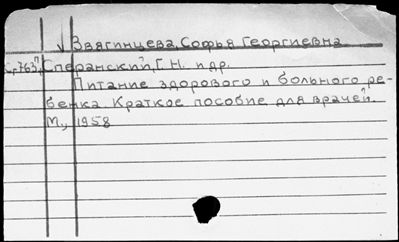 √ Звягинцева, Софья Георгиевна
Сперанский, Г. Н. и др.
Питание здорового и больного ре-
бенка. Краткое пособие для врачей.
М., 1958